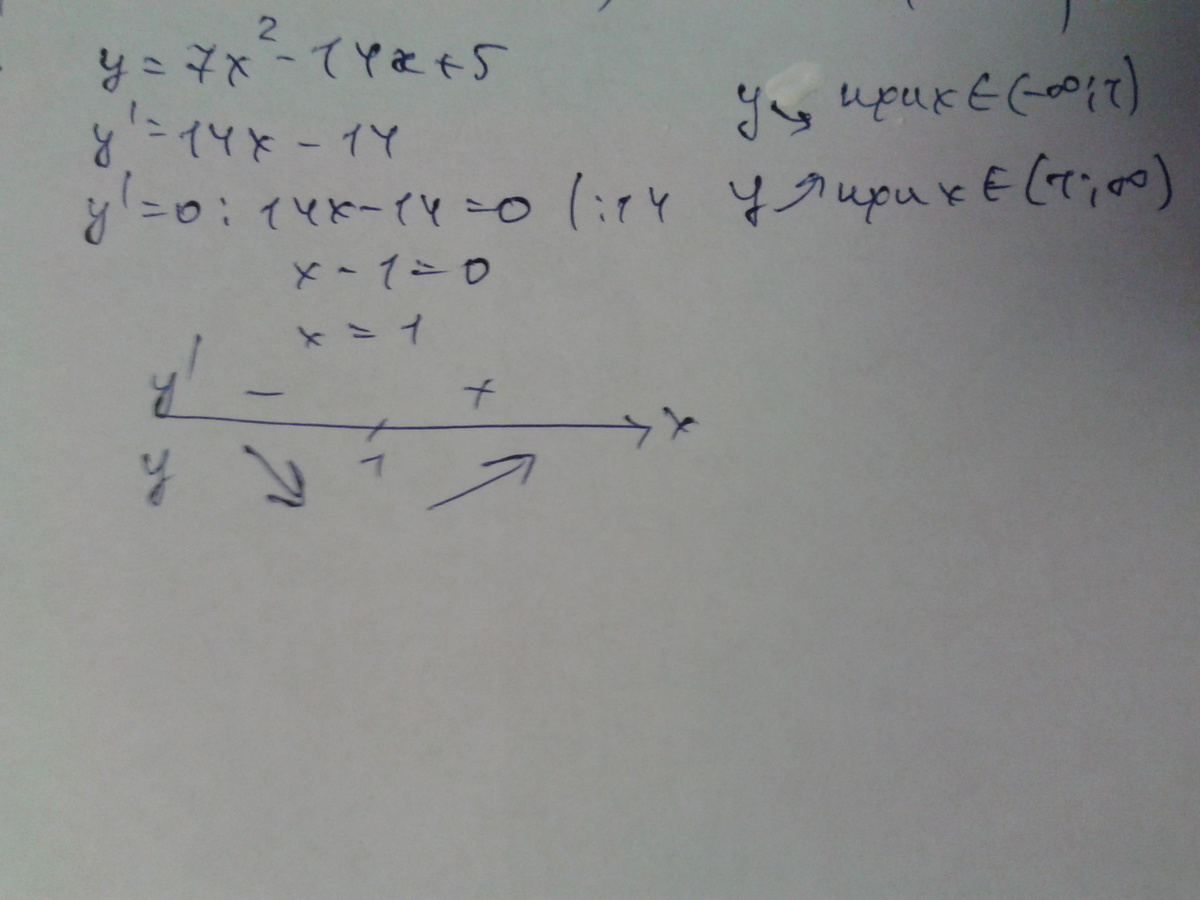 y = 7x² - 14x + 5
y' = 14x - 14
y' = 0 : 14x - 14 = 0 | :14
x - 1 = 0
x = 1
y' - +
x
y ↘ 1 ↗
y ↘ при x ∈ (-∞; 1)
y ↗ при x ∈ (1; ∞)